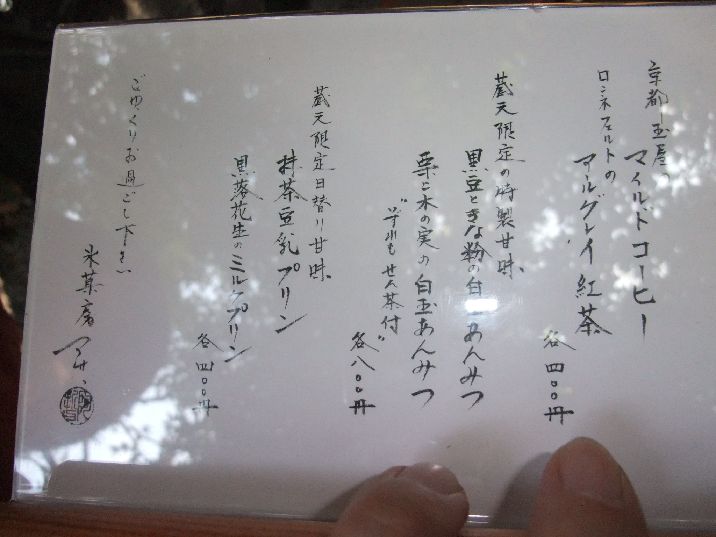 京都 玉屋の
マイルドコーヒー
ロンネフェルトの
アールグレイ紅茶
各四〇〇円
蔵天限定の特製甘味
黒豆ときな粉の白玉あんみつ
栗と木の実の白玉あんみつ
〝いずれもせん茶付〟
各八〇〇円
蔵天限定日替り甘味
抹茶豆乳プリン
黒落花生のミルクプリン
各四〇〇円
ごゆっくりお過ごし下さい
氷菓房